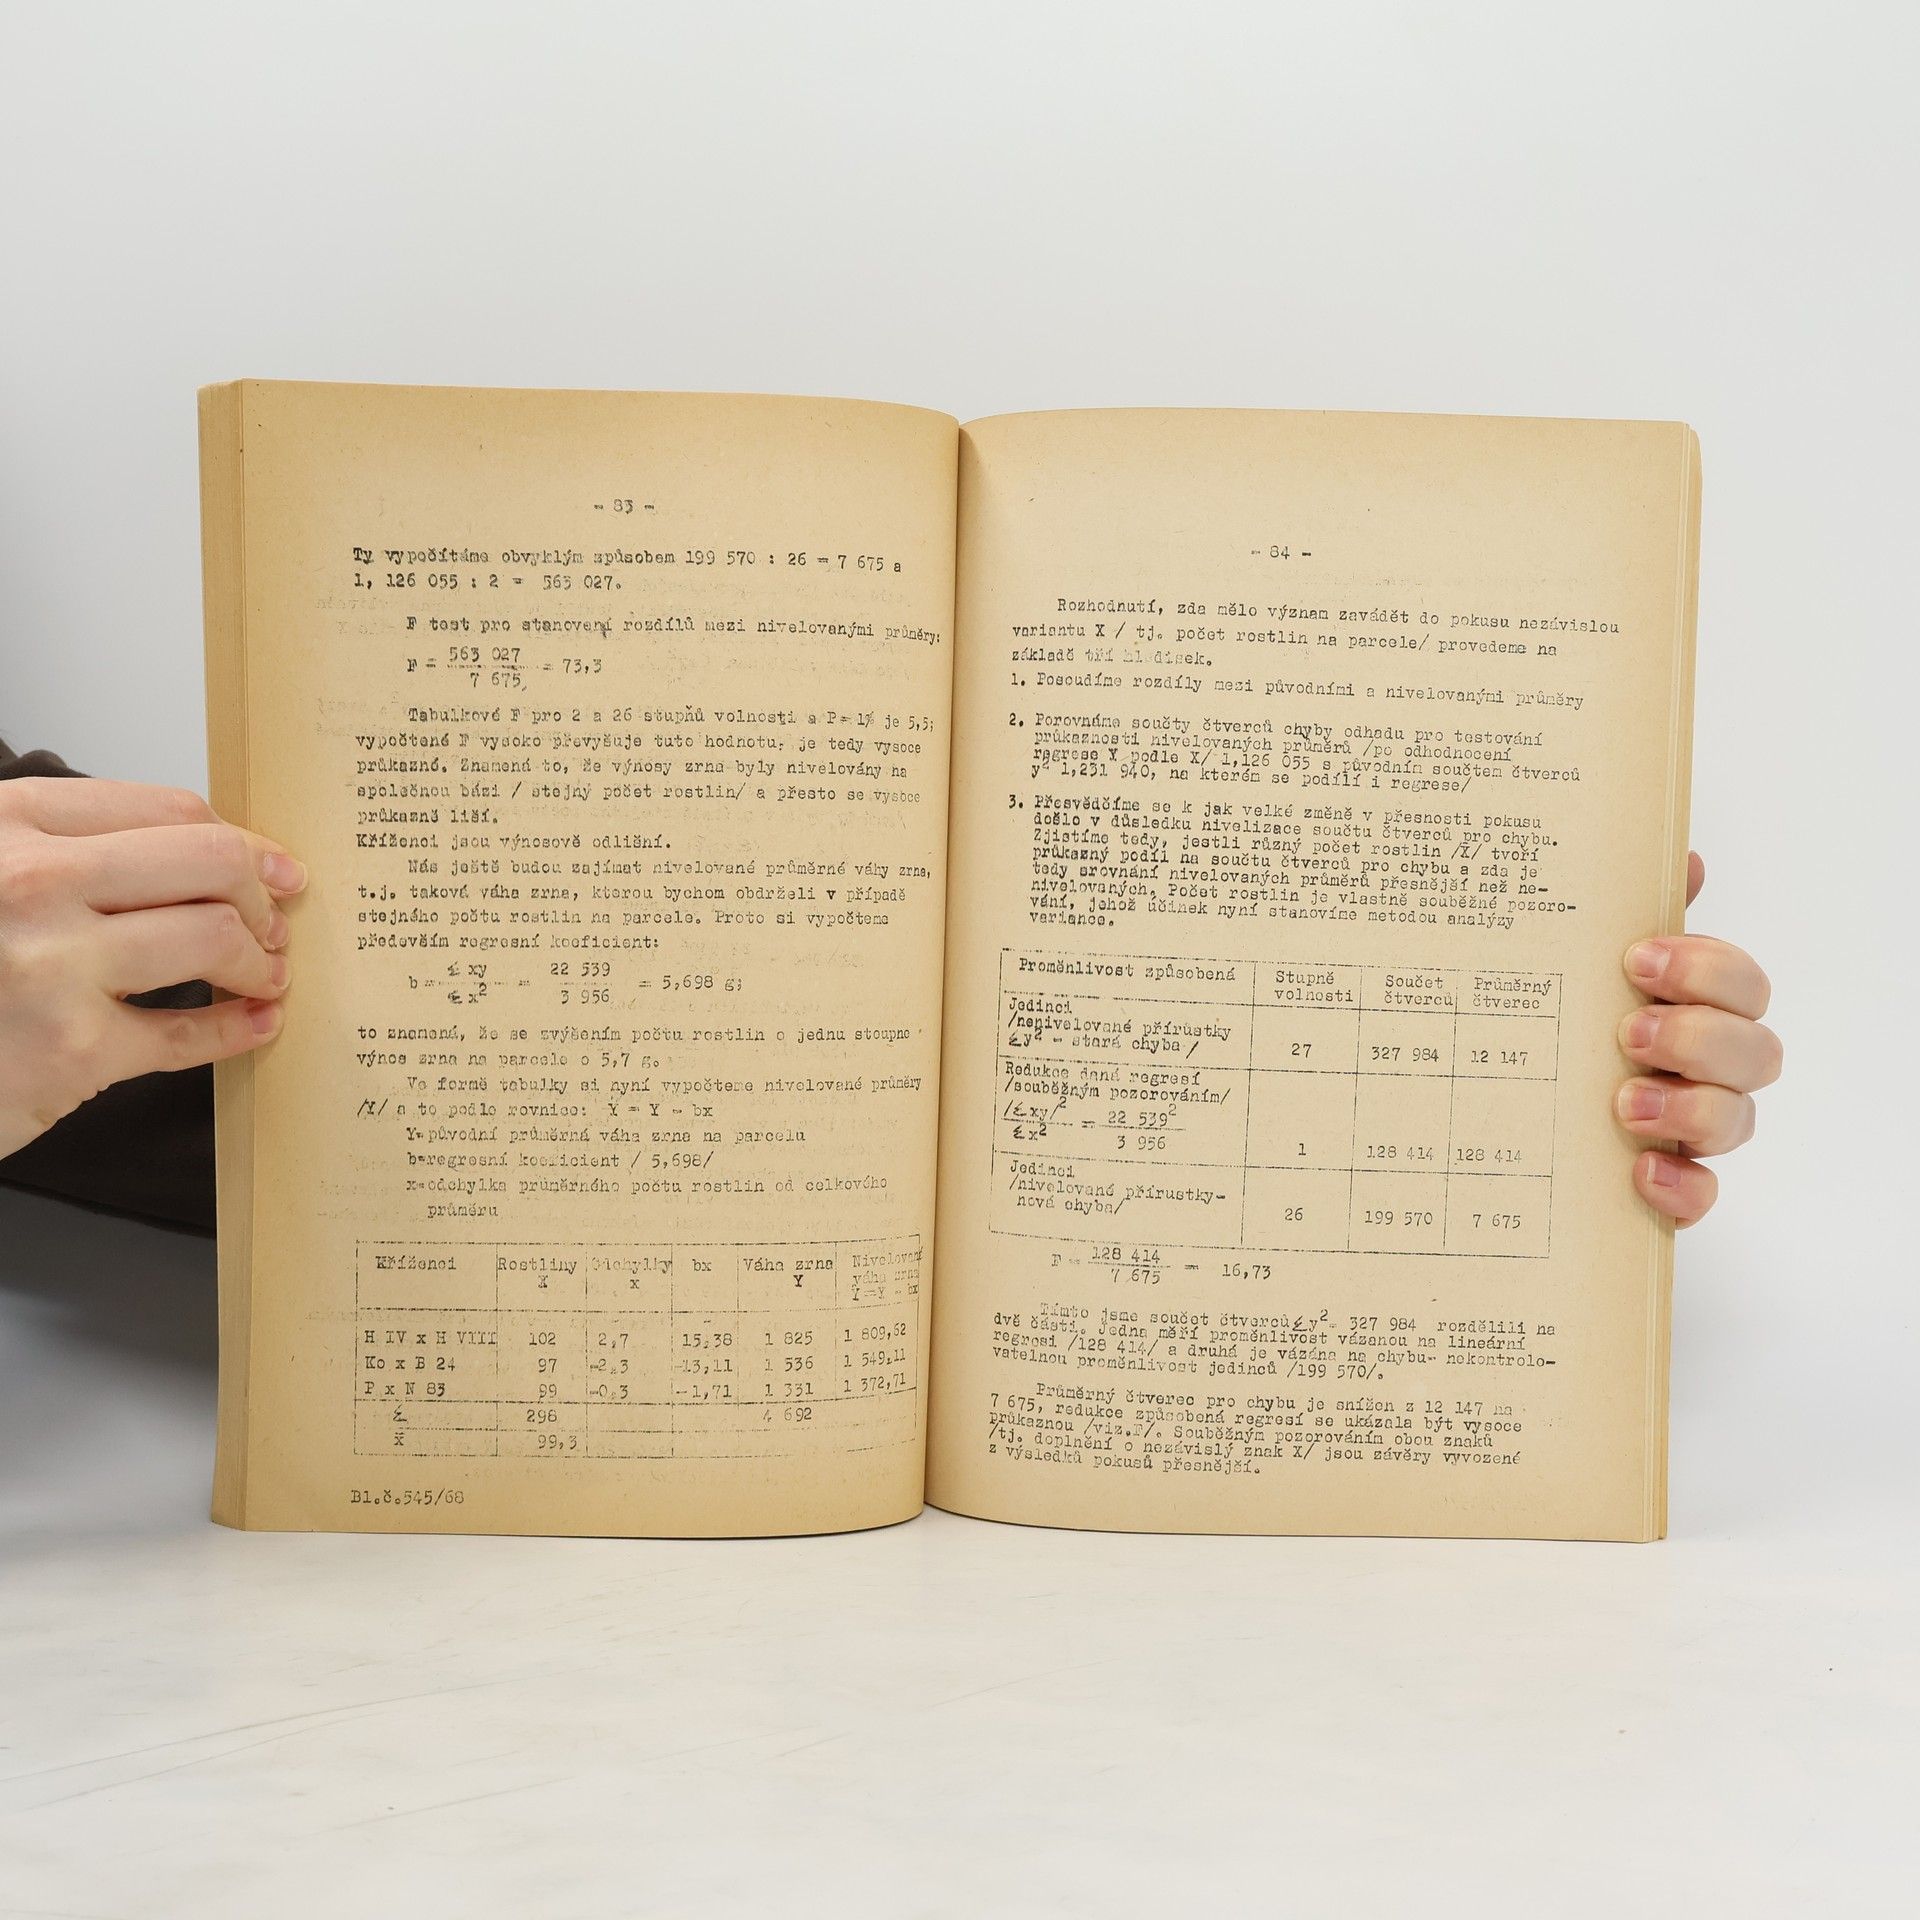 - 83 -
Ty vypočítáme obvyklým způsobem 199 570 : 26 = 7 675 a
1, 126 055 : 2 = 563 027.
F test pro stanovení rozdílů mezi nivelovanými průměry:
F = 563 027 / 7 675 = 73,3
Tabulkové F pro 2 a 26 stupňů volnosti a P= 1% je 5,5;
vypočtené F vysoko převyšuje tuto hodnotu, je tedy vysoce
průkazné. Znamená to, že výnosy zrna byly nivelovány na
společnou bázi / stejný počet rostlin/ a přesto se vysoce
průkazně liší.
Kříženci jsou výnosově odlišní.
Nás ještě budou zajímat nivelované průměrné váhy zrna,
t.j. taková váha zrna, kterou bychom obdrželi v případě
stejného počtu rostlin na parcele. Proto si vypočteme
především regresní koeficient:
b = Σ xy / Σ x² = 22 539 / 3 956 = 5,698 g;
to znamená, že se zvýšením počtu rostlin o jednu stoupne
výnos zrna na parcele o 5,7 g.
Ve formě tabulky si nyní vypočteme nivelované průměry
/Y/ a to podle rovnice: Y = Y - bx
Y=původní průměrná váha zrna na parcelu
b=regresní koeficient / 5,698/
x=odchylka průměrného počtu rostlin od celkového
průměru
Kříženci Rostliny X Odchylky x bx Váha zrna Y Nivelovaná váha zrna Y=Y - bx
H IV x H VIII 102 2,7 15,38 1 825 1 809,62
Ko x B 24 97 -2,3 -13,11 1 536 1 549,11
P x N 83 99 -0,3 -1,71 1 331 1 372,71
Σ 298 4 692
x̄ 99,3
Bl.č.545/68
- 84 -
Rozhodnutí, zda mělo význam zavádět do pokusu nezávislou
variantu X / tj. počet rostlin na parcele/ provedeme na
základě tří hledisek.
1. Posoudíme rozdíly mezi původními a nivelovanými průměry
2. Porovnáme součty čtverců chyby odhadu pro testování
průkaznosti nivelovaných průměrů /po odhodnocení
regrese Y podle X/ 1,126 055 s původním součtem čtverců
y² 1,231 940, na kterém se podílí i regrese/
3. Přesvědčíme se k jak velké změně v přesnosti pokusu
došlo v důsledku nivelizace součtu čtverců pro chybu.
Zjistíme tedy, jestli různý počet rostlin /X/ tvoří
průkazný podíl na součtu čtverců pro chybu a zda je
tedy srovnání nivelovaných průměrů přesnější než ne-
nivelovaných. Počet rostlin je vlastně souběžné pozoro-
vání, jehož účinek nyní stanovíme metodou analýzy
variance.
Proměnlivost způsobená Stupně volnosti Součet čtverců Průměrný čtverec
Jedinci
/nenivelované přírůstky
Σy² - stará chyba / 27 327 984 12 147
Redukce daná regresí
/souběžným pozorováním/
/Σxy/² / Σx² = 22 539² / 3 956 1 128 414 128 414
Jedinci
/nivelované přírustky-
nová chyba/ 26 199 570 7 675
F = 128 414 / 7 675 = 16,73
Tímto jsme součet čtverců Σy² = 327 984 rozdělili na
dvě části. Jedna měří proměnlivost vázanou na lineární
regresi /128 414/ a druhá je vázána na chybu- nekontrolo-
vatelnou proměnlivost jedinců /199 570/.
Průměrný čtverec pro chybu je snížen z 12 147 na
7 675, redukce způsobená regresí se ukázala být vysoce
průkaznou /viz.F/. Souběžným pozorováním obou znaků
/tj. doplnění o nezávislý znak X/ jsou závěry vyvozené
z výsledků pokusů přesnější.